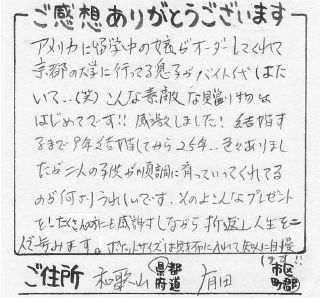 ご感想ありがとうございます
アメリカに留学中の娘がオーダーしてくれて
京都の大学に行ってる息子がバイト代はた
いて…(笑)こんな素敵な贈り物は
はじめてです!!感激しました!結婚す
るまで9年結婚してから25年…色々ありまし
たが二人の子供が順調に育っていってくれてる
のが何よりうれしいです。そのよなプレゼント
をしたくさんの方にも感謝しながら折返し人生を二
人で歩みます。ポケットサイズは財布に入れて友人に自慢
します!!
ご住所 和歌山 都道府県 有田 市区町郡